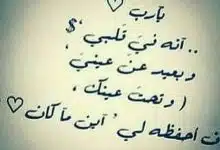 يارب ♡
.. أنه في قلبي ،$
وبعيد عن عيني ،
( وتحت عينك ،
احفظه لي " أين ما كان ♡